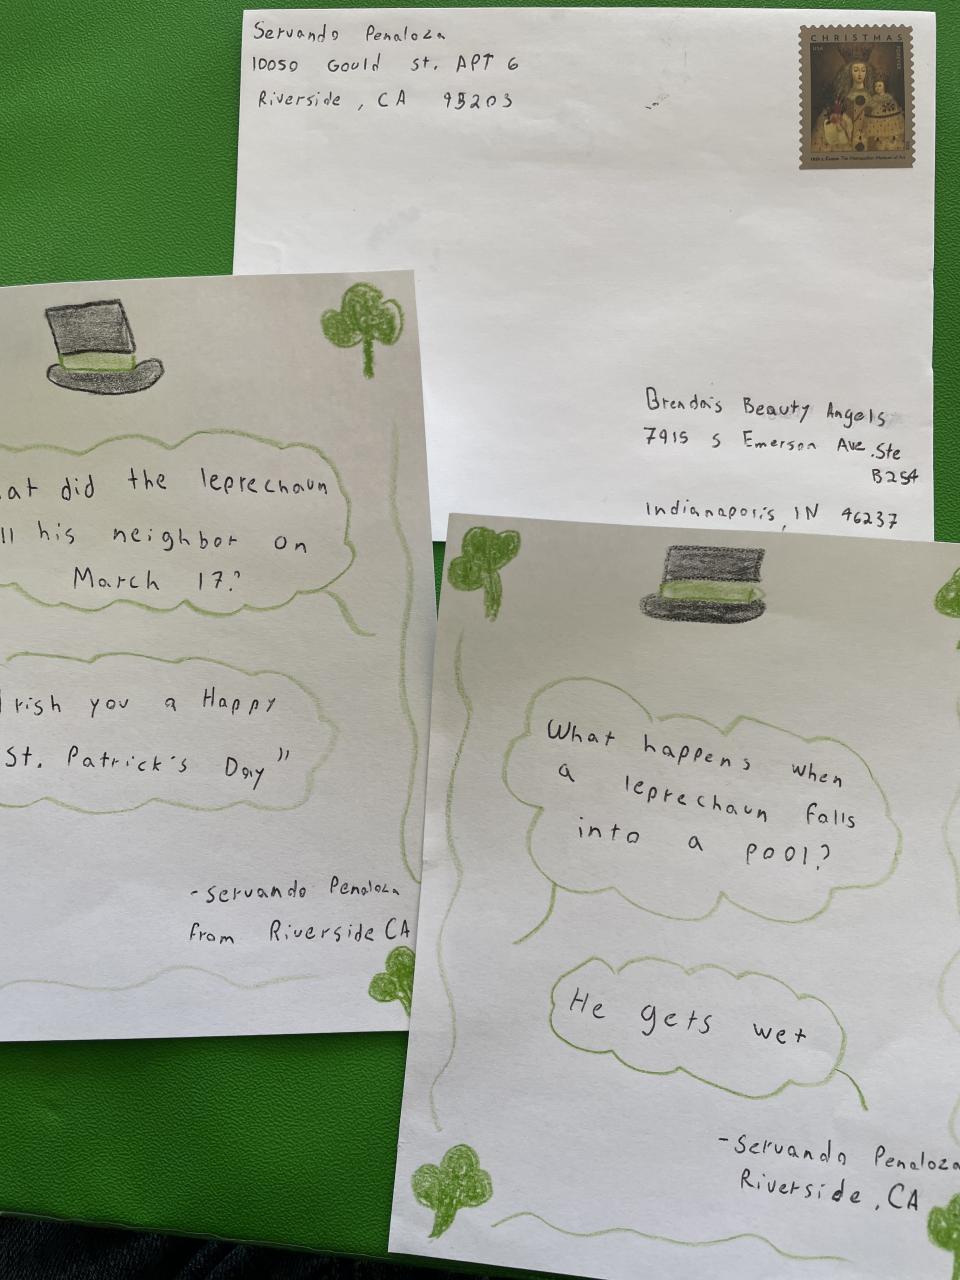 Servando Penaloza
10050 Gould st. APT 6
Riverside, CA 95203
CHRISTMAS
USA
FOREVER
Brenda's Beauty Angels
7915 S Emerson Ave. Ste
B254
Indianapolis, IN 46237
at did the leprechaun
ll his neighbor on
March 17?
Irish you a Happy
St. Patrick's Day"
-Servando Penaloza
from Riverside CA
What happens when
a leprechaun falls
into a pool?
He gets wet
-Servando Penaloza
Riverside, CA